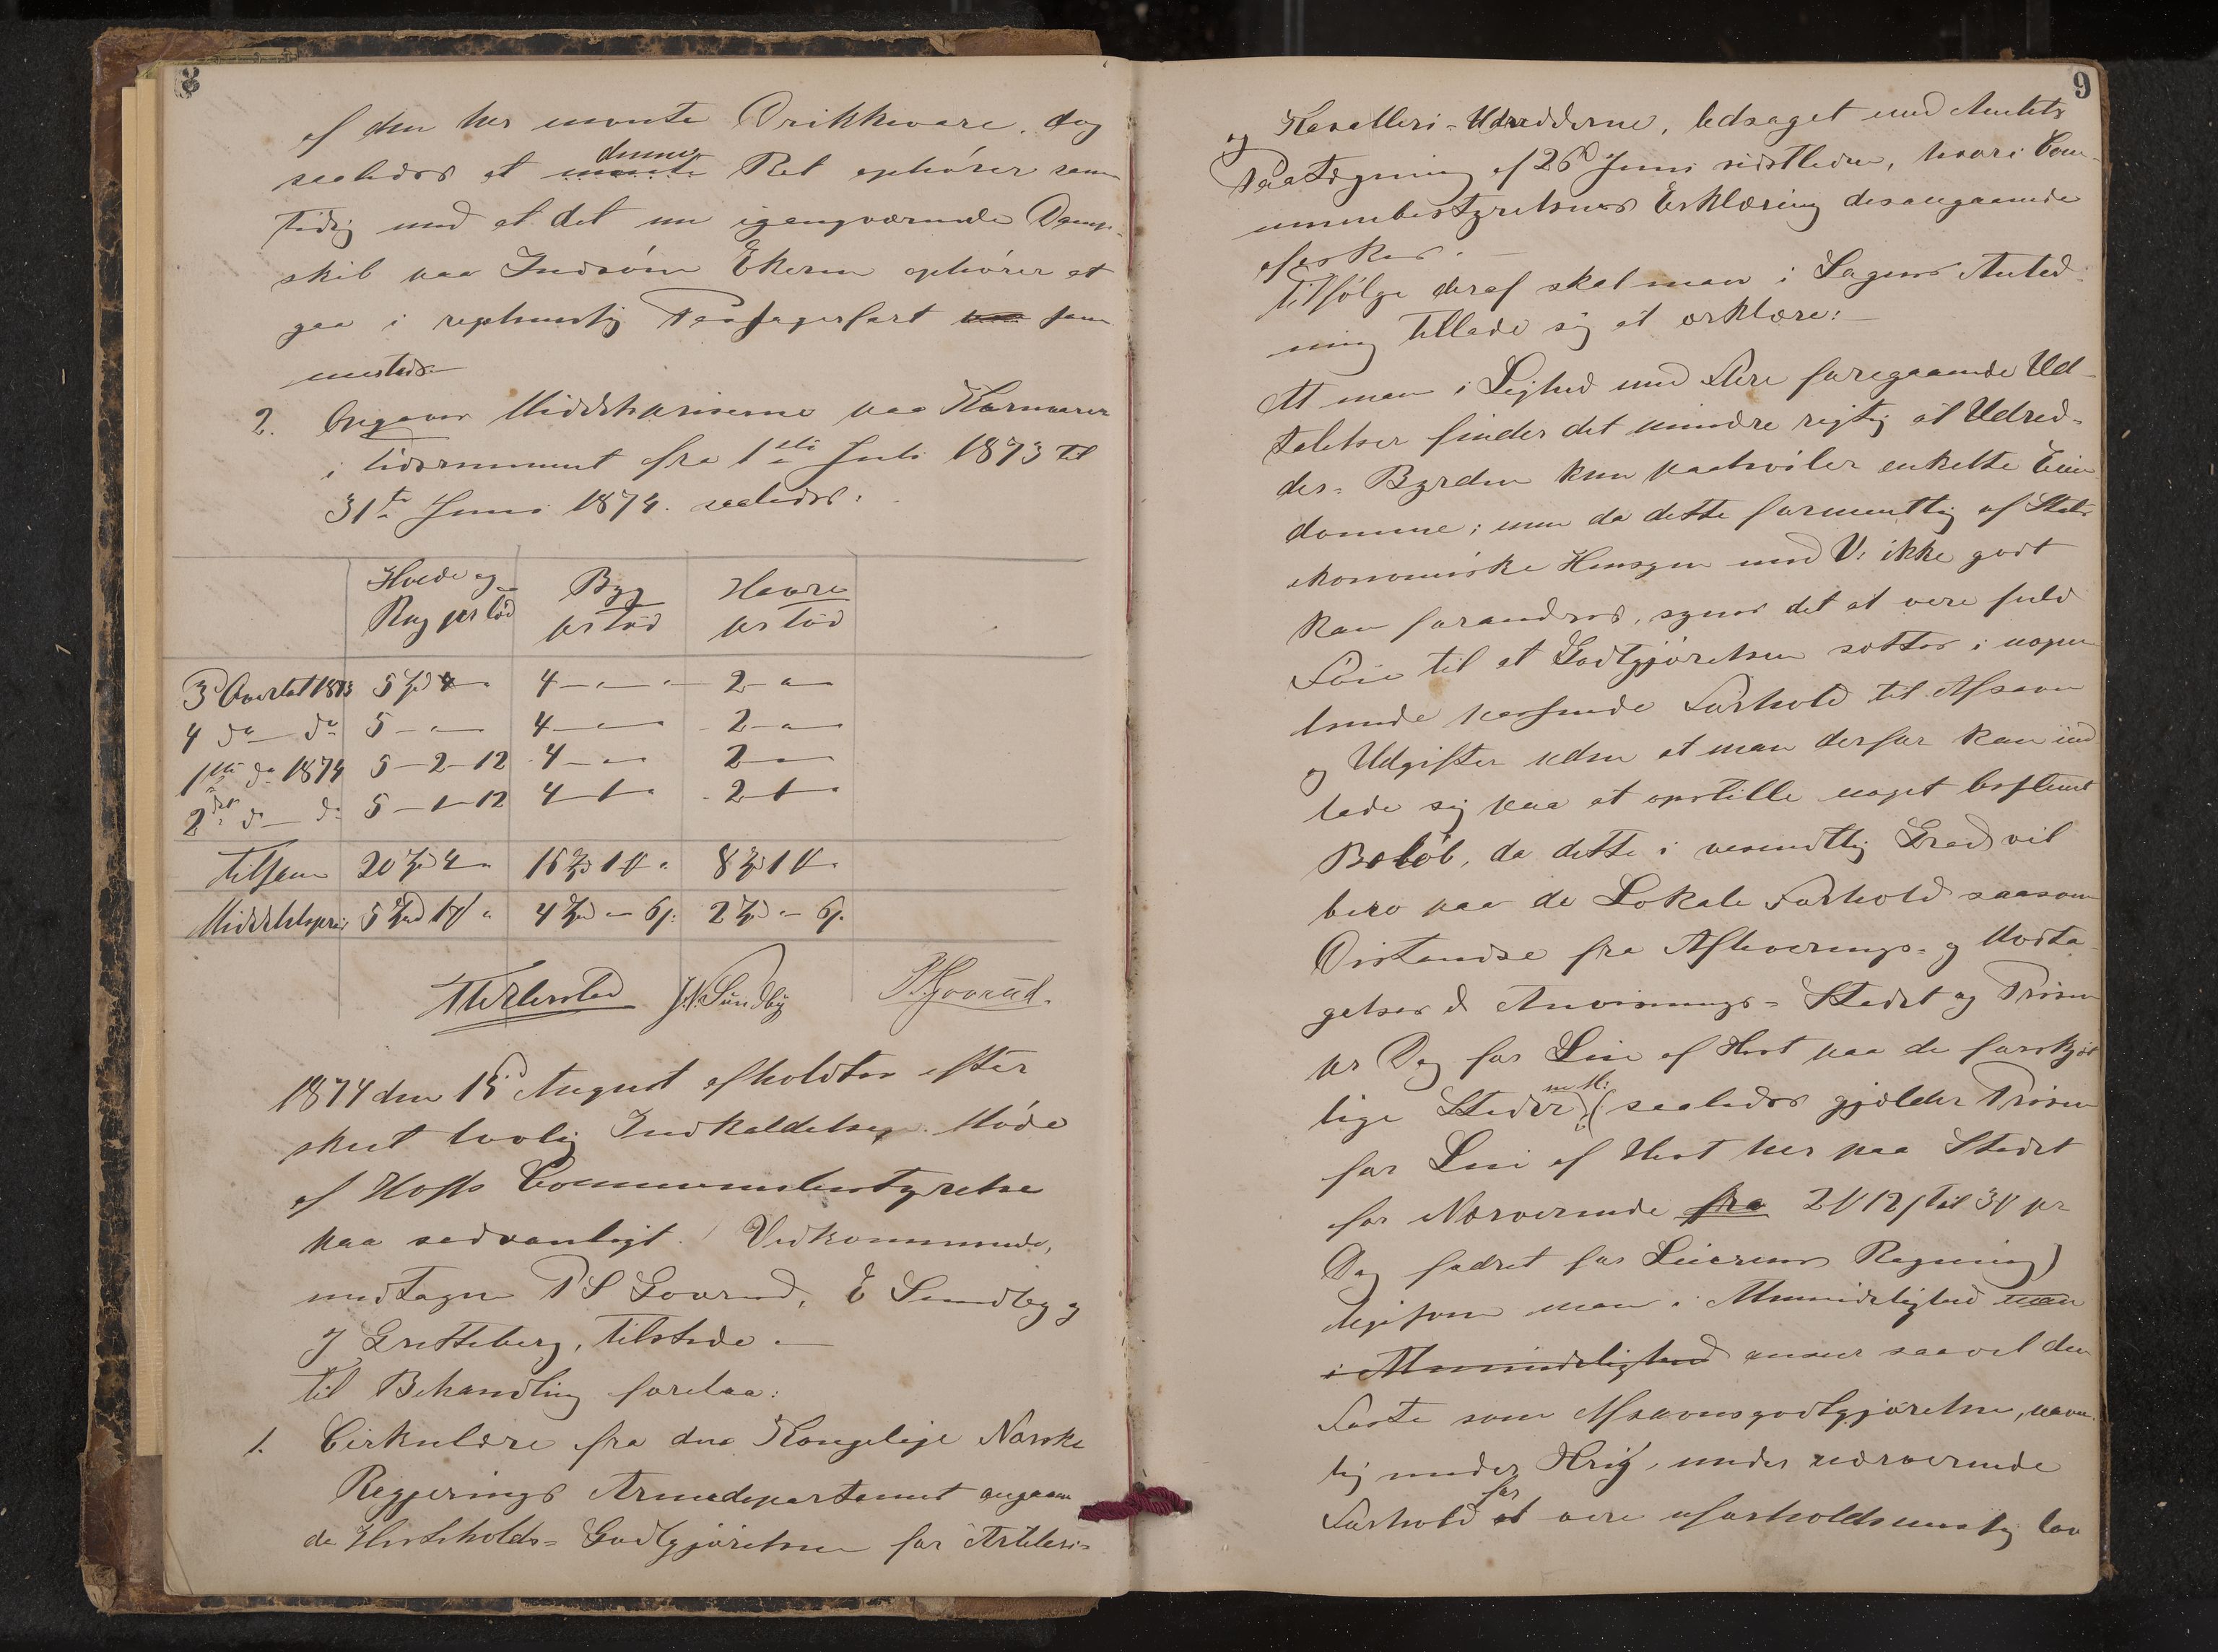 8
af den her nævnte Drikkevare, dog
saaledes at denne nævnte Ret ophører sam
tidig med at det nu igangværende Damp-
skib paa Indsøen Ekeren ophører at
gaa i regelmæssig Passagerfart sam
mesteds.
2. Opgaves Middelpriserne paa Kornvarer
i Tidsrummet fra 1ste Juli 1873 til
31te Juni 1874. saaledes:
Hvede og Rug pr Td
Byg pr Td
Havre pr Td
3d Qvartal 1873 5 Spd 4 4 2
4 do do 5 4 2
1ste do 1874 5 - 2 - 12 4 2
2det do do 5 - 1 - 12 4 - 1 2 - 1
Tilsam 20 Spd 4 16 Spd 1 8 Spd 1
Middelspris 5 Spd 1 4 Spd - 6 2 Spd - 6
J. N. Sundby
1874 den 15d August afholdtes efter
skeet lovlig Indkaldelse Møde
af Hoffs Communebestyrelse
paa sædvanligt. Vedkommende,
undtagen P S Govrud, E Sundby og
J Grøtteberg, tilstede.
Til Behandling forelaa:
1. Cirkulære fra den Kongelige Norske
Regjerings Armedepartement angaaen
de Hesteholds-Godtgjørelsen for Artileri-
9
og Kavalleri-Udrederne, ledsaget med Amtets
Paategning af 26d Juni sidstleden, hvori Com-
munebestyrelsens Erklæring desangaaende
æskes.
Tilfølge deraf skal man i Sagens Anled-
ning tillade sig at erklære:
At man i Lighed med Flere foregaaende Ud-
talelser finder det mindre rigtig at Udred-
der-Byrden kun paahviler enkelte Eien
domme; men da dette formentlig af Stats
økonomiske Hensyn ikke godt
kan forandres, synes det at være fuld
Føie til at Godtgjørelsen sættes i nogen
lunde passende Forhold til Afsavn
og Udgifter uden at man derfor kan ind
lade sig paa at opstille noget bestemt
Beløb, da dette i væsentlig Grad vil
bero paa de Lokale Forhold saasom
Distandse fra Afleverings- og Modta
gelses Anvisnings-Stedet og Prisen
pr Dag for Leie af Hest paa de forskjel
lige Steder m M: (saaledes gjælder Prisen
for Leie af Hest her paa Stedet
for Nærværende fra 2 12 til 3 pr
Dag fødret for Leierens Regning)
ligesom man i Almindelighed man
i Almindelighed anser saavel den
Faste som Afsavnsgodtgjørelse, navn
lig under Krig, under nærværende
Forhold for at være uforholdsmæssig lav